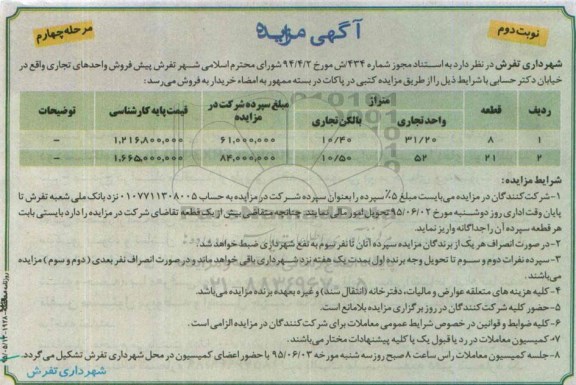 نوبت دوم
آگهی مزایده
مرحله چهارم
شهرداری تفرش در نظر دارد به استناد مجوز شماره ۴۳۴/ش مورخ ۹۴/۴/۲ شورای محترم اسلامی شهر تفرش پیش فروش واحدهای تجاری واقع در
خیابان دکتر حسابی با شرایط ذیل را از طریق مزایده کتبی در پاکات در بسته ممهور به امضاء خریدار به فروش می‌رسد:
ردیف قطعه متراژ مبلغ سپرده شرکت در مزایده قیمت پایه کارشناسی توضیحات
واحد تجاری بالکن تجاری
۱ ۸ ۳۱/۲۰ ۱۰/۴۰ ۶۱,۰۰۰,۰۰۰ ۱,۲۱۶,۸۰۰,۰۰۰ –
۲ ۲۱ ۵۲ ۱۰/۵۰ ۸۴,۰۰۰,۰۰۰ ۱,۶۶۵,۰۰۰,۰۰۰ –
شرایط مزایده:
۱-شرکت کنندگان در مزایده می‌بایست مبلغ ۵٪ سپرده را بعنوان سپرده شرکت در مزایده به حساب ۰۱۰۷۷۱۱۳۰۸۰۰۵ نزد بانک ملی شعبه تفرش تا
پایان وقت اداری روز دوشنبه مورخ ۹۵/۰۶/۰۲ تحویل امور مالی نمایند. چنانچه متقاضی بیش از یک قطعه تقاضای شرکت در مزایده را دارد بایستی بابت
هر قطعه سپرده آن را جداگانه واریز نماید.
۲-در صورت انصراف هر یک از برندگان مزایده سپرده آنان تا نفر سوم به نفع شهرداری ضبط خواهد شد.
۳-سپرده نفرات دوم و سوم تا تحویل وجه برنده اول بمدت یک هفته نزد شهرداری باقی خواهد ماند و در صورت انصراف نفر بعدی (دوم و سوم) مزایده
می‌باشند.
۴-کلیه هزینه های متعلقه عوارض و مالیات، دفترخانه (انتقال سند) و غیره بعهده برنده مزایده می‌باشد.
۵-حضور کلیه شرکت کنندگان در روز برگزاری مزایده بلامانع است.
۶-کلیه ضوابط و قوانین در خصوص شرایط عمومی معاملات برای شرکت کنندگان در مزایده الزامی است.
۷-کمیسیون معاملات در رد یا قبول یک یا کلیه پیشنهادات مختار می‌باشند.
۸-جلسه کمیسیون معاملات راس ساعت ۸ صبح روز سه شنبه مورخه ۹۵/۰۶/۰۳ با حضور اعضای کمیسیون در محل شهرداری تفرش تشکیل می‌گردد.
شهرداری تفرش